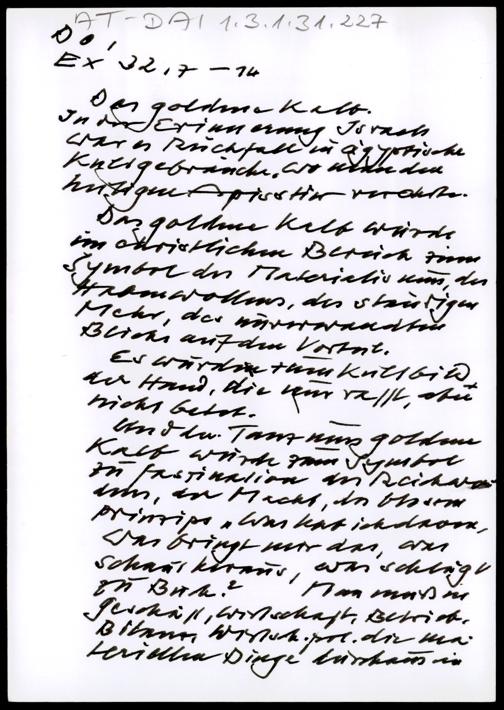 AT-DAI 1.3.1.31.227
Do,
Ex 32,7-14
Das goldene Kalb.
In der Erinnerung Israels
war es Rückfall in ägyptische
Kultgebräuche, wo man den
heiligen Apisstier verehrte.
Das goldene Kalb wurde
im christlichen Bereich zum
Symbol des Materialismus, des
Habenwollens, des ständigen
Mehr, des unverwandten
Blicks auf den Vorteil.
Es wurde zum Kultbild
der Hand, die nur rafft, aber
nicht betet.
Und der Tanz ums goldene
Kalb wurde zum Symbol
der Macht, des
prinzips „Was hab ich davon,
was bringt mir das, was
schaut heraus, was schlägt
zu Buch?" Man muß in
Geschäft, Wirtschaft, Betrieb,
Bilanz, Wirtsch.pol. die ma-
teriellen Dinge durchaus in